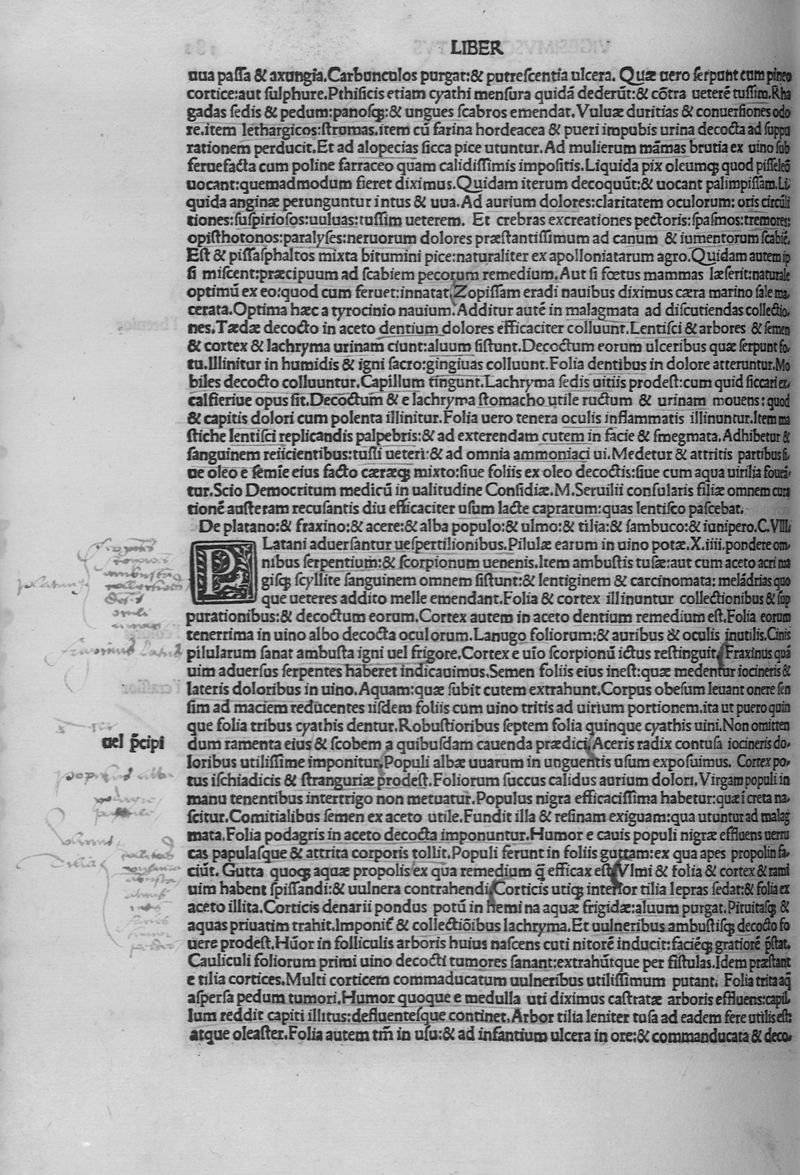 LIBER
uua passa & axungia. Carbunculos purgat: & putrescentia ulcera. Quæ uero serpunt cum pineo
cortice: aut sulphure. Pthisicis etiam cyathi mensura quidã dederũt: & cõtra ueterẽ tussim. Rha
gadas sedis & pedum: panosq;: & ungues scabros emendat. Vuluæ duritias & conuersiones odo
re. item lethargicos: strumas. item cũ farina hordeacea & pueri impubis urina decocta ad suppu
rationem perducit. Et ad alopecias sicca pice utuntur. Ad mulierum mãmas brutia ex uino sub
feruefacta cum poline farraceo quam calidissimis impositis. Liquida pix oleumq; quod pisseleõ
uocant: quemadmodum fieret diximus. Quidam iterum decoquũt: & uocant palimpissam. Li
quida anginæ perunguntur intus & uua. Ad aurium dolores: claritatem oculorum: oris circũli
tiones: suspiriosos: uuluas: tussim ueterem. Et crebras excreationes pectoris: spasmos: tremores:
opisthotonos: paralyses: neruorum dolores præstantissimum ad canum & iumentorum scabiẽ.
Est & pissasphaltos mixta bitumini pice: naturaliter ex apolloniatarum agro. Quidam autem ip
si miscent: præcipuum ad scabiem pecorum remedium. Aut si fœtus mammas læserit: naturale
optimũ ex eo: quod cum feruet: innatat. Zopissam eradi nauibus diximus cæra marino sale ma,
cerata. Optima hæc a tyrocinio nauium. Additur autẽ in malagmata ad discutiendas collectio,
nes. Tædæ decocto in aceto dentium dolores efficaciter colluunt. Lentisci & arbores & semen
& cortex & lachryma urinam ciunt: aluum sistunt. Decoctum eorum ulceribus quæ serpunt fo,
tu. Illinitur in humidis & igni sacro: gingiuas colluunt. Folia dentibus in dolore atteruntur. Mo
biles decocto colluuntur. Capillum tingunt. Lachryma sedis uitiis prodest: cum quid siccari ex,
calfieriue opus sit. Decoctum & e lachryma stomacho utile ructum & urinam mouens: quod
& capitis dolori cum polenta illinitur. Folia uero tenera oculis inflammatis illinuntur. Item ma
stiche lentisci replicandis palpebris: & ad exterendam cutem in facie & smegmata. Adhibetur &
sanguinem reiicientibus: tussi ueteri: & ad omnia ammoniaci ui. Medetur & attritis partibus si,
ue oleo e semie eius facto cæræq; mixto: siue foliis ex oleo decoctis: siue cum aqua uirilia fouea,
tur. Scio Democritum medicũ in ualitudine Considiæ. M. Seruilii consularis filiæ omnem cura
tionẽ austeram recusantis diu efficaciter usum lacte caprarum: quas lentisco pascebat.
De platano: & fraxino: & acere: & alba populo: & ulmo: & tilia: & sambuco: & iunipero. C. VIII.
PLatani aduersantur uespertilionibus. Pilulæ earum in uino potæ. X. iiii. pondere om,
nibus serpentium: & scorpionum uenenis. Item ambustis tusæ: aut cum aceto acri ma
gisq; scyllite sanguinem omnem sistunt: & lentiginem & carcinomata: melãdrias quo
que ueteres addito melle emendant. Folia & cortex illinuntur collectionibus & sup
purationibus: & decoctum eorum. Cortex autem in aceto dentium remedium est. Folia eorum
tenerrima in uino albo decocta oculorum. Lanugo foliorum: & auribus & oculis inutilis. Cinis
pilularum sanat ambusta igni uel frigore. Cortex e uio scorpionũ ictus restinguit. Fraxinus quã
uim aduersus serpentes haberet indicauimus. Semen foliis eius inest: quæ medentur iocineris &
lateris doloribus in uino. Aquam: quæ subit cutem extrahunt. Corpus obesum leuant onere sen
sim ad maciem reducentes iisdem foliis cum uino tritis ad uirium portionem. ita ut puero quin
que folia tribus cyathis dentur. Robustioribus septem folia quinque cyathis uini. Non omitten
uel p̃cipi
dum ramenta eius & scobem a quibusdam cauenda prædici. Aceris radix contusa iocineris do,
loribus utilissime imponitur. Populi albæ uuarum in unguentis usum exposuimus. Cortex po,
tus ischiadicis & stranguriæ prodest. Foliorum succus calidus aurium dolori. Virgam populi in
manu tenentibus intertrigo non metuatur. Populus nigra efficacissima habetur: quæ i creta na,
scitur. Comitialibus semen ex aceto utile. Fundit illa & resinam exiguam: qua utuntur ad malag
mata. Folia podagris in aceto decocta imponuntur. Humor e cauis populi nigræ effluens uerru
cas papulasque & attrita corporis tollit. Populi ferunt in foliis guttam: ex qua apes propolin fa,
ciũt. Gutta quoq; aquæ propolis ex qua remedium q̃ efficax est. Vlmi & folia & cortex & rami
uim habent spissandi: & uulnera contrahendi. Corticis utiq; interior tilia lepras sedat: & folia ex
aceto illita. Corticis denarii pondus potũ in hemina aquæ frigidæ: aluum purgat. Pituitasq; &
aquas priuatim trahit. Imponit̃ & collectiõibus lachryma. Et uulneribus ambustisq; decocto fo
uere prodest. Hũor in folliculis arboris huius nascens cuti nitorẽ inducit: faciẽq; gratiorẽ p̃stat.
Cauliculi foliorum primi uino decocti tumores sanant: extrahũtque per fistulas. Idem præstant
e tilia cortices. Multi corticem commaducatum uulneribus utilissimum putant. Folia trita aq̃
aspersa pedum tumori. Humor quoque e medulla uti diximus castratæ arboris effluens: capil,
lum reddit capiti illitus: defluentesque continet. Arbor tilia leniter tusa ad eadem fere utilis est:
atque oleaster. Folia autem tm̃ in usu: & ad infantium ulcera in ore: & commanducata & deco,